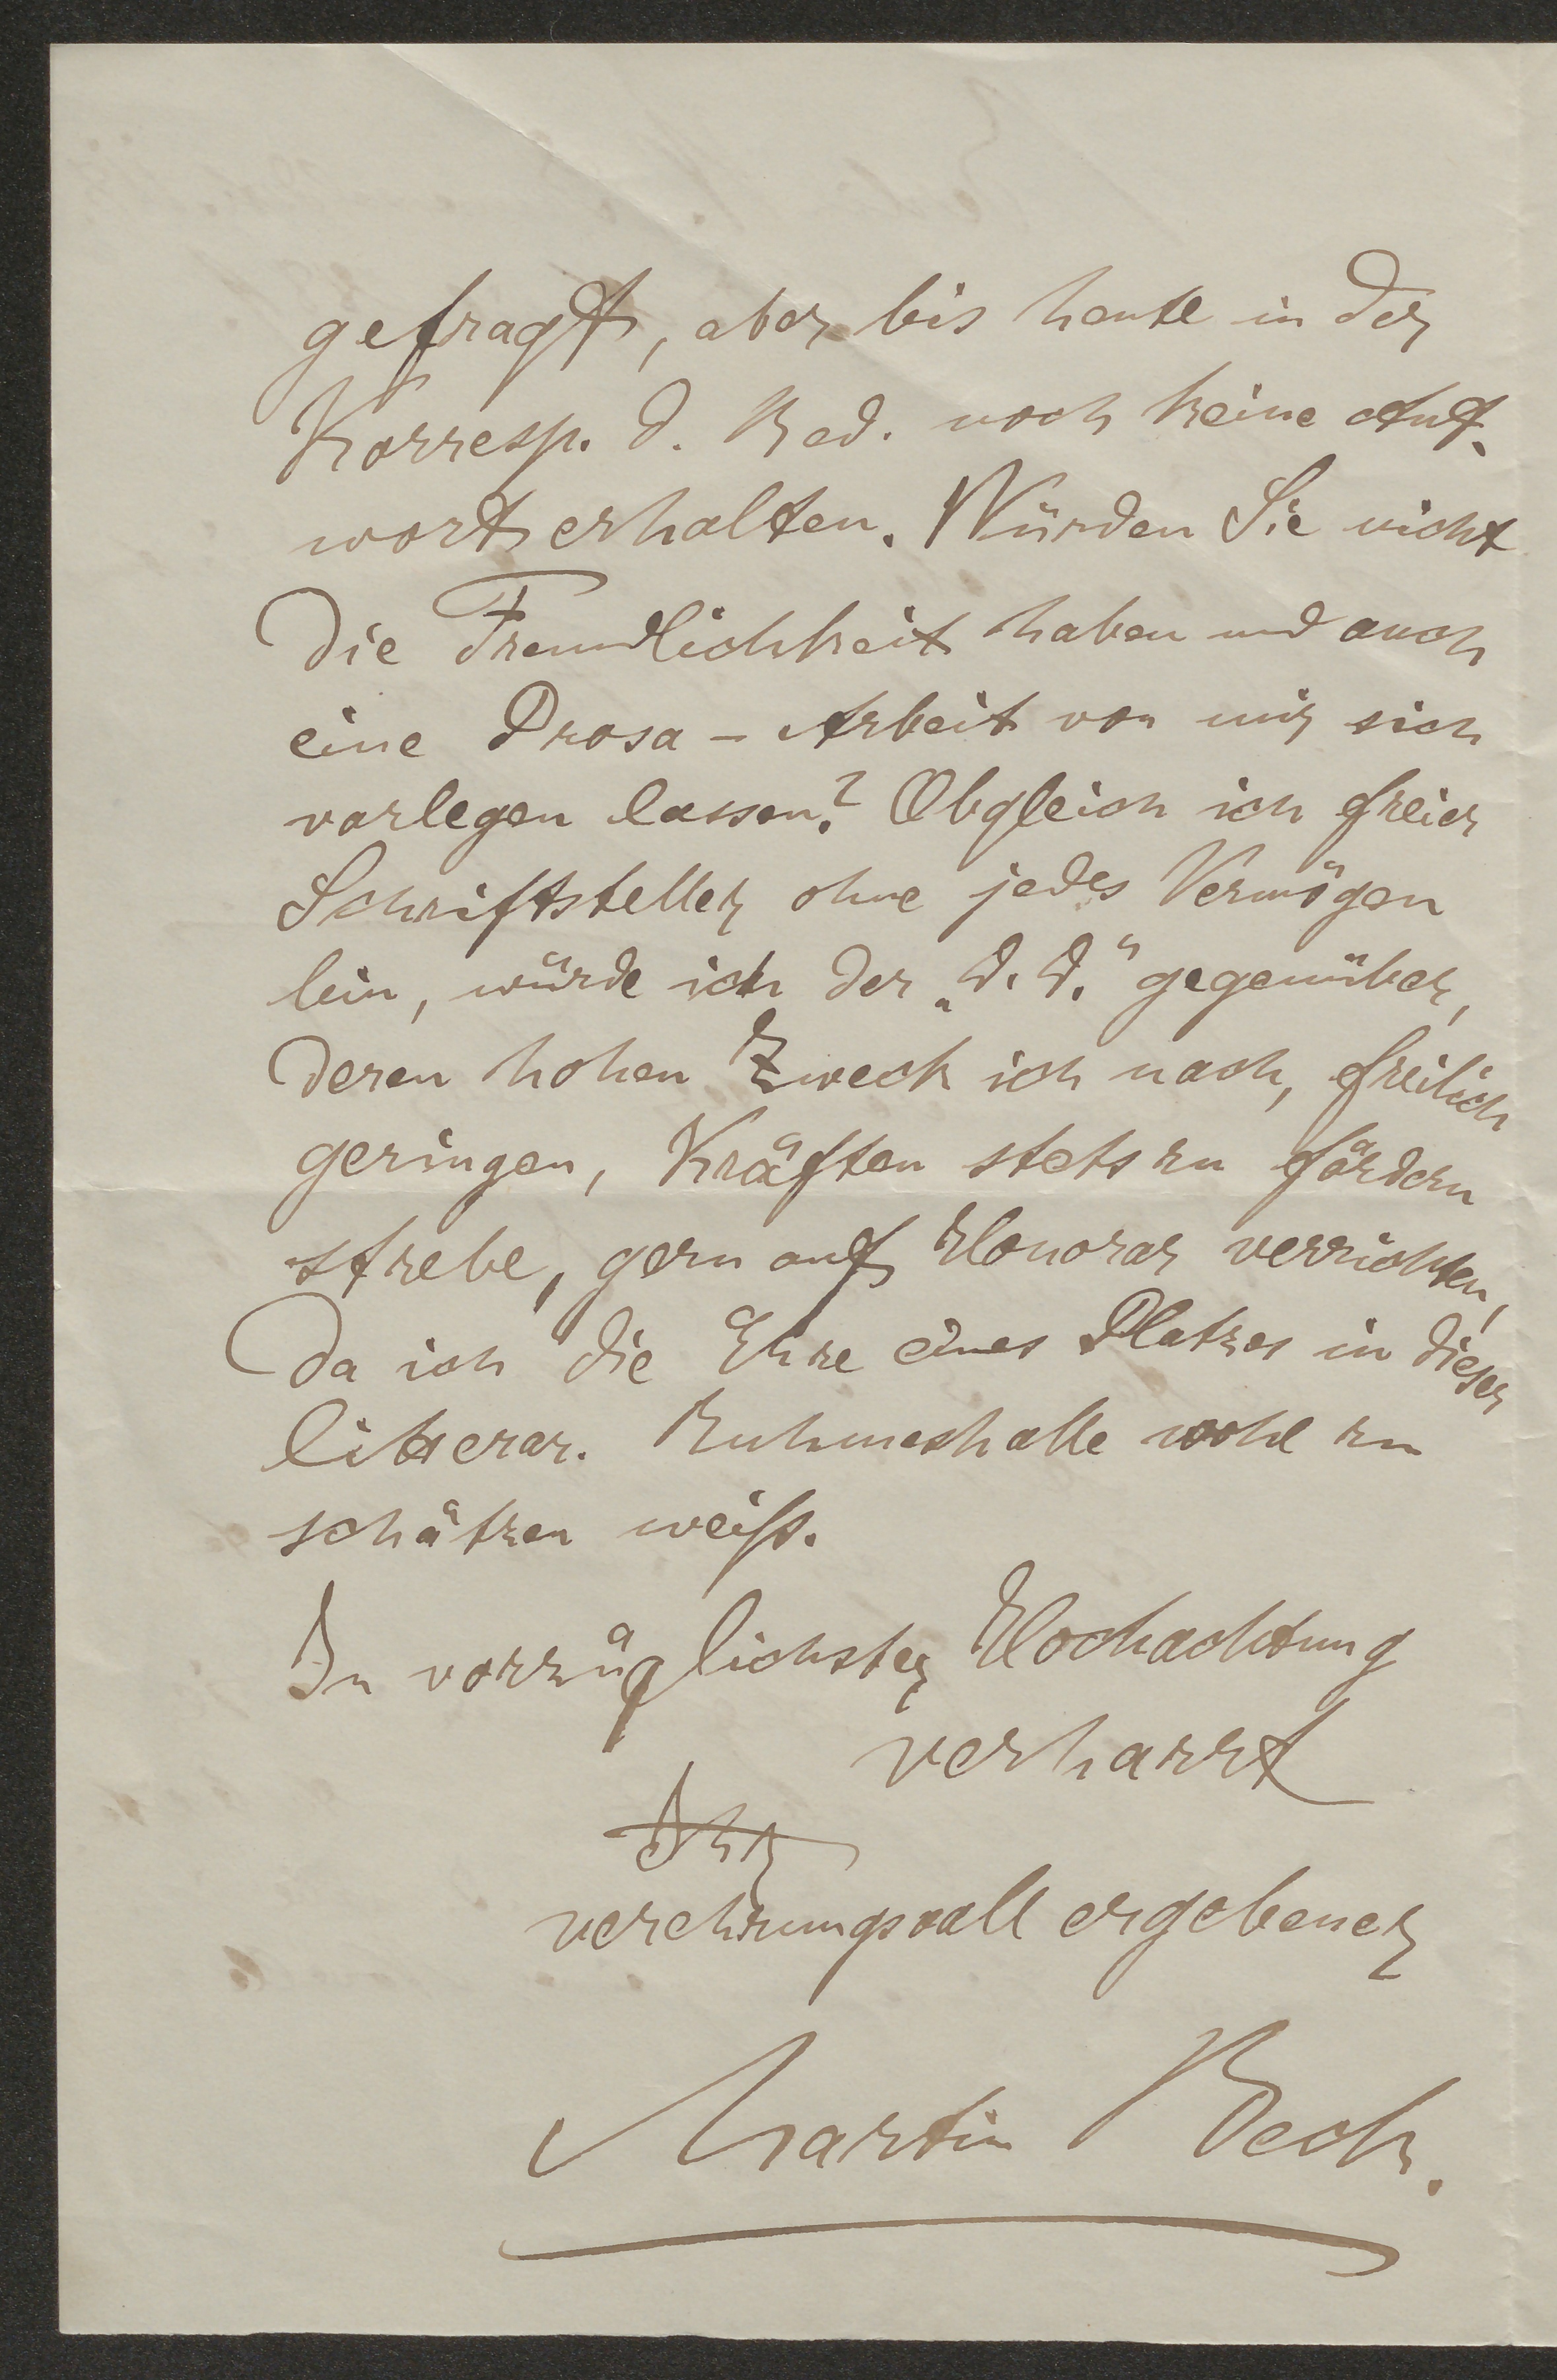 gefragt, aber bis heute in der
Korresp. d. Red. noch keine Ant-
wort erhalten. Würden Sie nicht
die Freundlichkeit haben und auch
eine Prosa-Arbeit von mir sich
vorlegen lassen? Obgleich ich freier
Schriftsteller ohne jedes Vermögen
bin, würde ich der „D. D.“ gegenüber,
deren hohen Zweck ich nach, freilich
geringen, Kräften stets zu fördern
strebe, gern auf Honorar verzichten,
da ich die Ehre eines Platzes in dieser
litterar. Ruhmeshalle wohl zu
schätzen weiß.
In vorzüglichster Hochachtung
verharrt
Ihr
verehrungsvoll ergebener
Martin Beck.